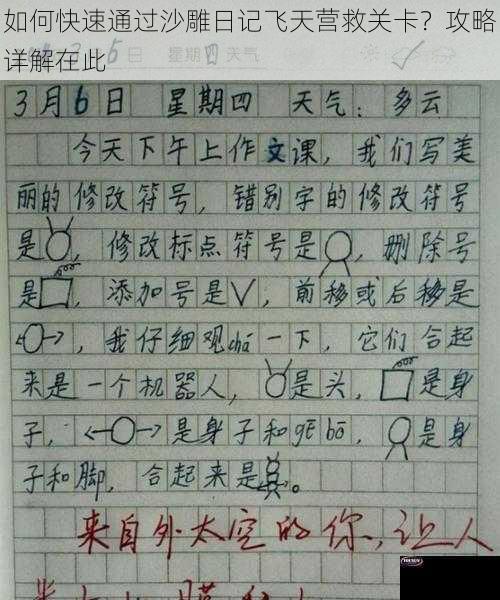 如何快速通过沙雕日记飞天营救关卡？攻略
详解在此
3月6日 星期四 天气：多云
今天下午上作文课，我们写美
丽的修改符号，错别字的修改符号
是，修改标点符号是，删除号
是，添加号是V，前移或后移是
，我仔细观chá一下，它们合起
来是一个机器人，是头，是身
子，是身子和gē bō，是身
子和脚，合起来是。
来自外太空的你，让人